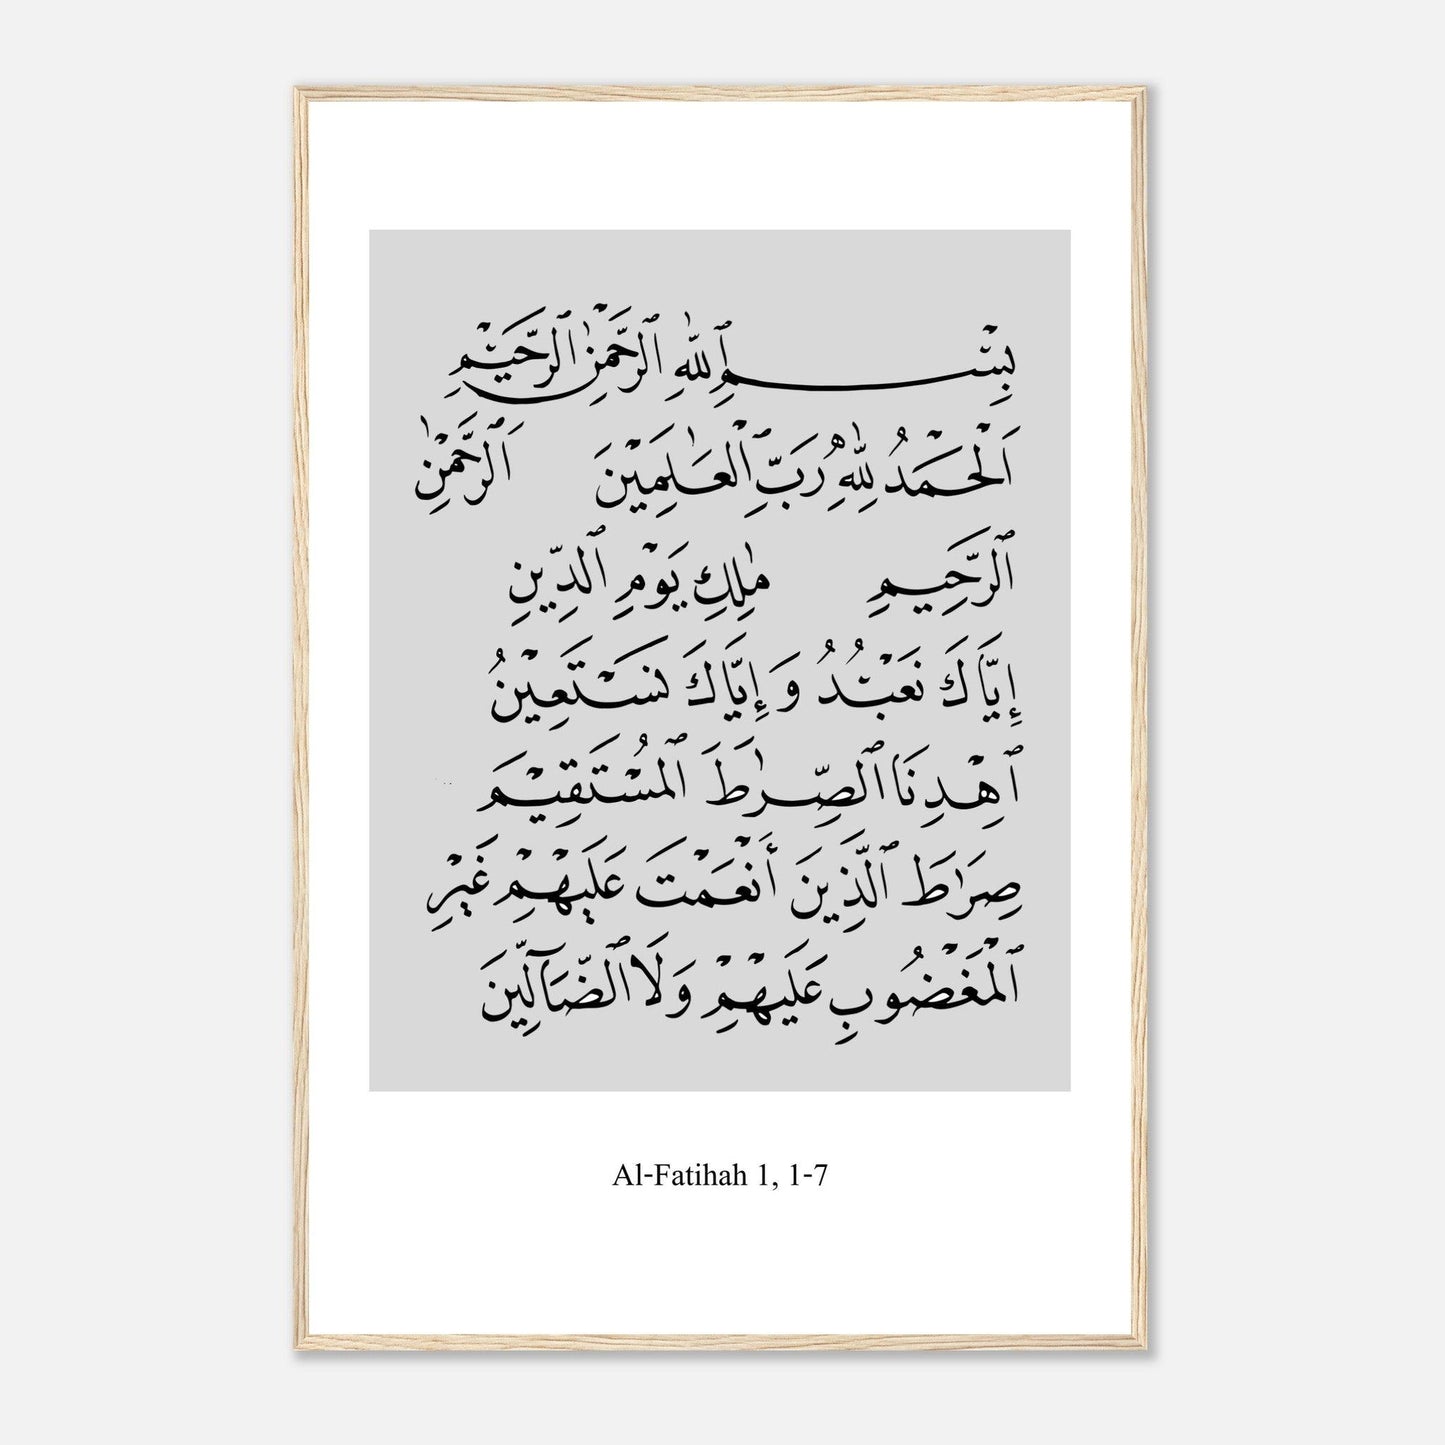 بِسْمِ ٱللَّهِ ٱلرَّحْمَٰنِ ٱلرَّحِيْمِ
اَلْحَمْدُ لِلَّهِ رَبِّ ٱلْعَٰلَمِيْنَ اَلرَّحْمَٰنِ
ٱلرَّحِيمِ مَٰلِكِ يَوْمِ ٱلدِّينِ
إِيَّاكَ نَعْبُدُ وَ إِيَّاكَ نَسْتَعِيْنُ
ٱهْدِنَا ٱلصِّرَٰطَ ٱلْمُسْتَقِيْمَ
صِرَٰطَ ٱلَّذِينَ أَنْعَمْتَ عَلَيْهِمْ غَيْرِ
ٱلْمَغْضُوبِ عَلَيْهِمْ وَلَا ٱلضَّآلِّيْنَ
Al-Fatihah 1, 1-7